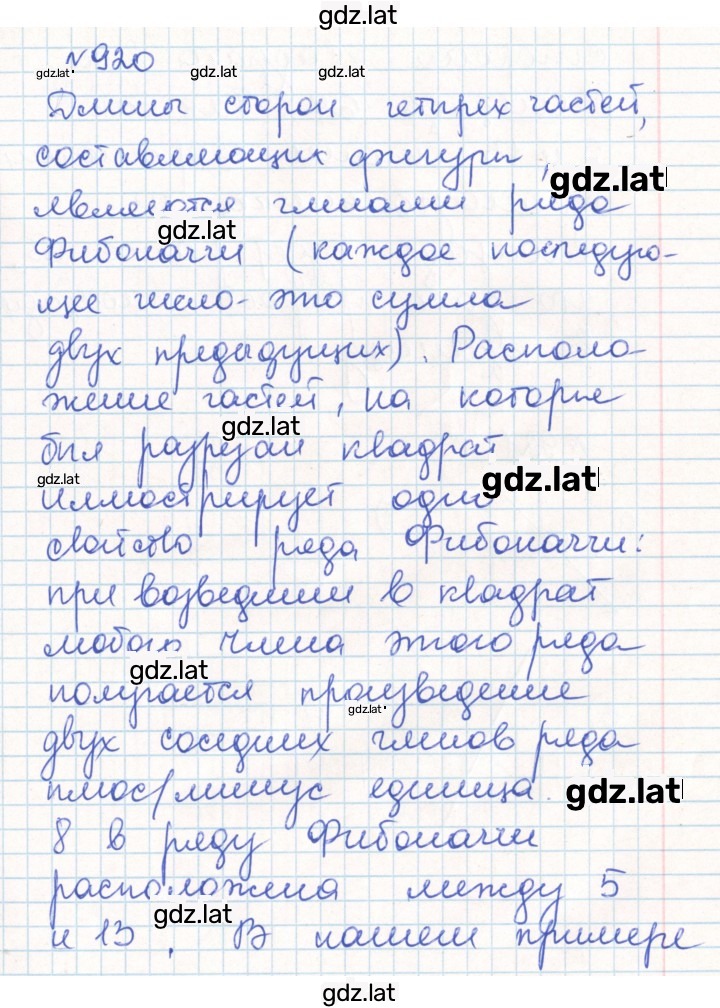 gdz.lat
№920
gdz.lat gdz.lat gdz.lat
Длины сторон четырех частей,
составляющих фигуры,
gdz.lat
являются членами ряда
gdz.lat
Фибоначчи (каждое последую-
щее число - это сумма
двух предыдущих). Располо
жение частей, на которые
gdz.lat
был разрезан квадрат
gdz.lat gdz.lat
иллюстрирует одно
свойство ряда Фибоначчи:
при возведении в квадрат
любого члена этого ряда
gdz.lat
получается произведение
gdz.lat
двух соседних членов ряда
плюс/минус единица.
gdz.lat
8 в ряду Фибоначчи
расположена между 5
gdz.lat
и 13. В нашем примере
gdz.lat